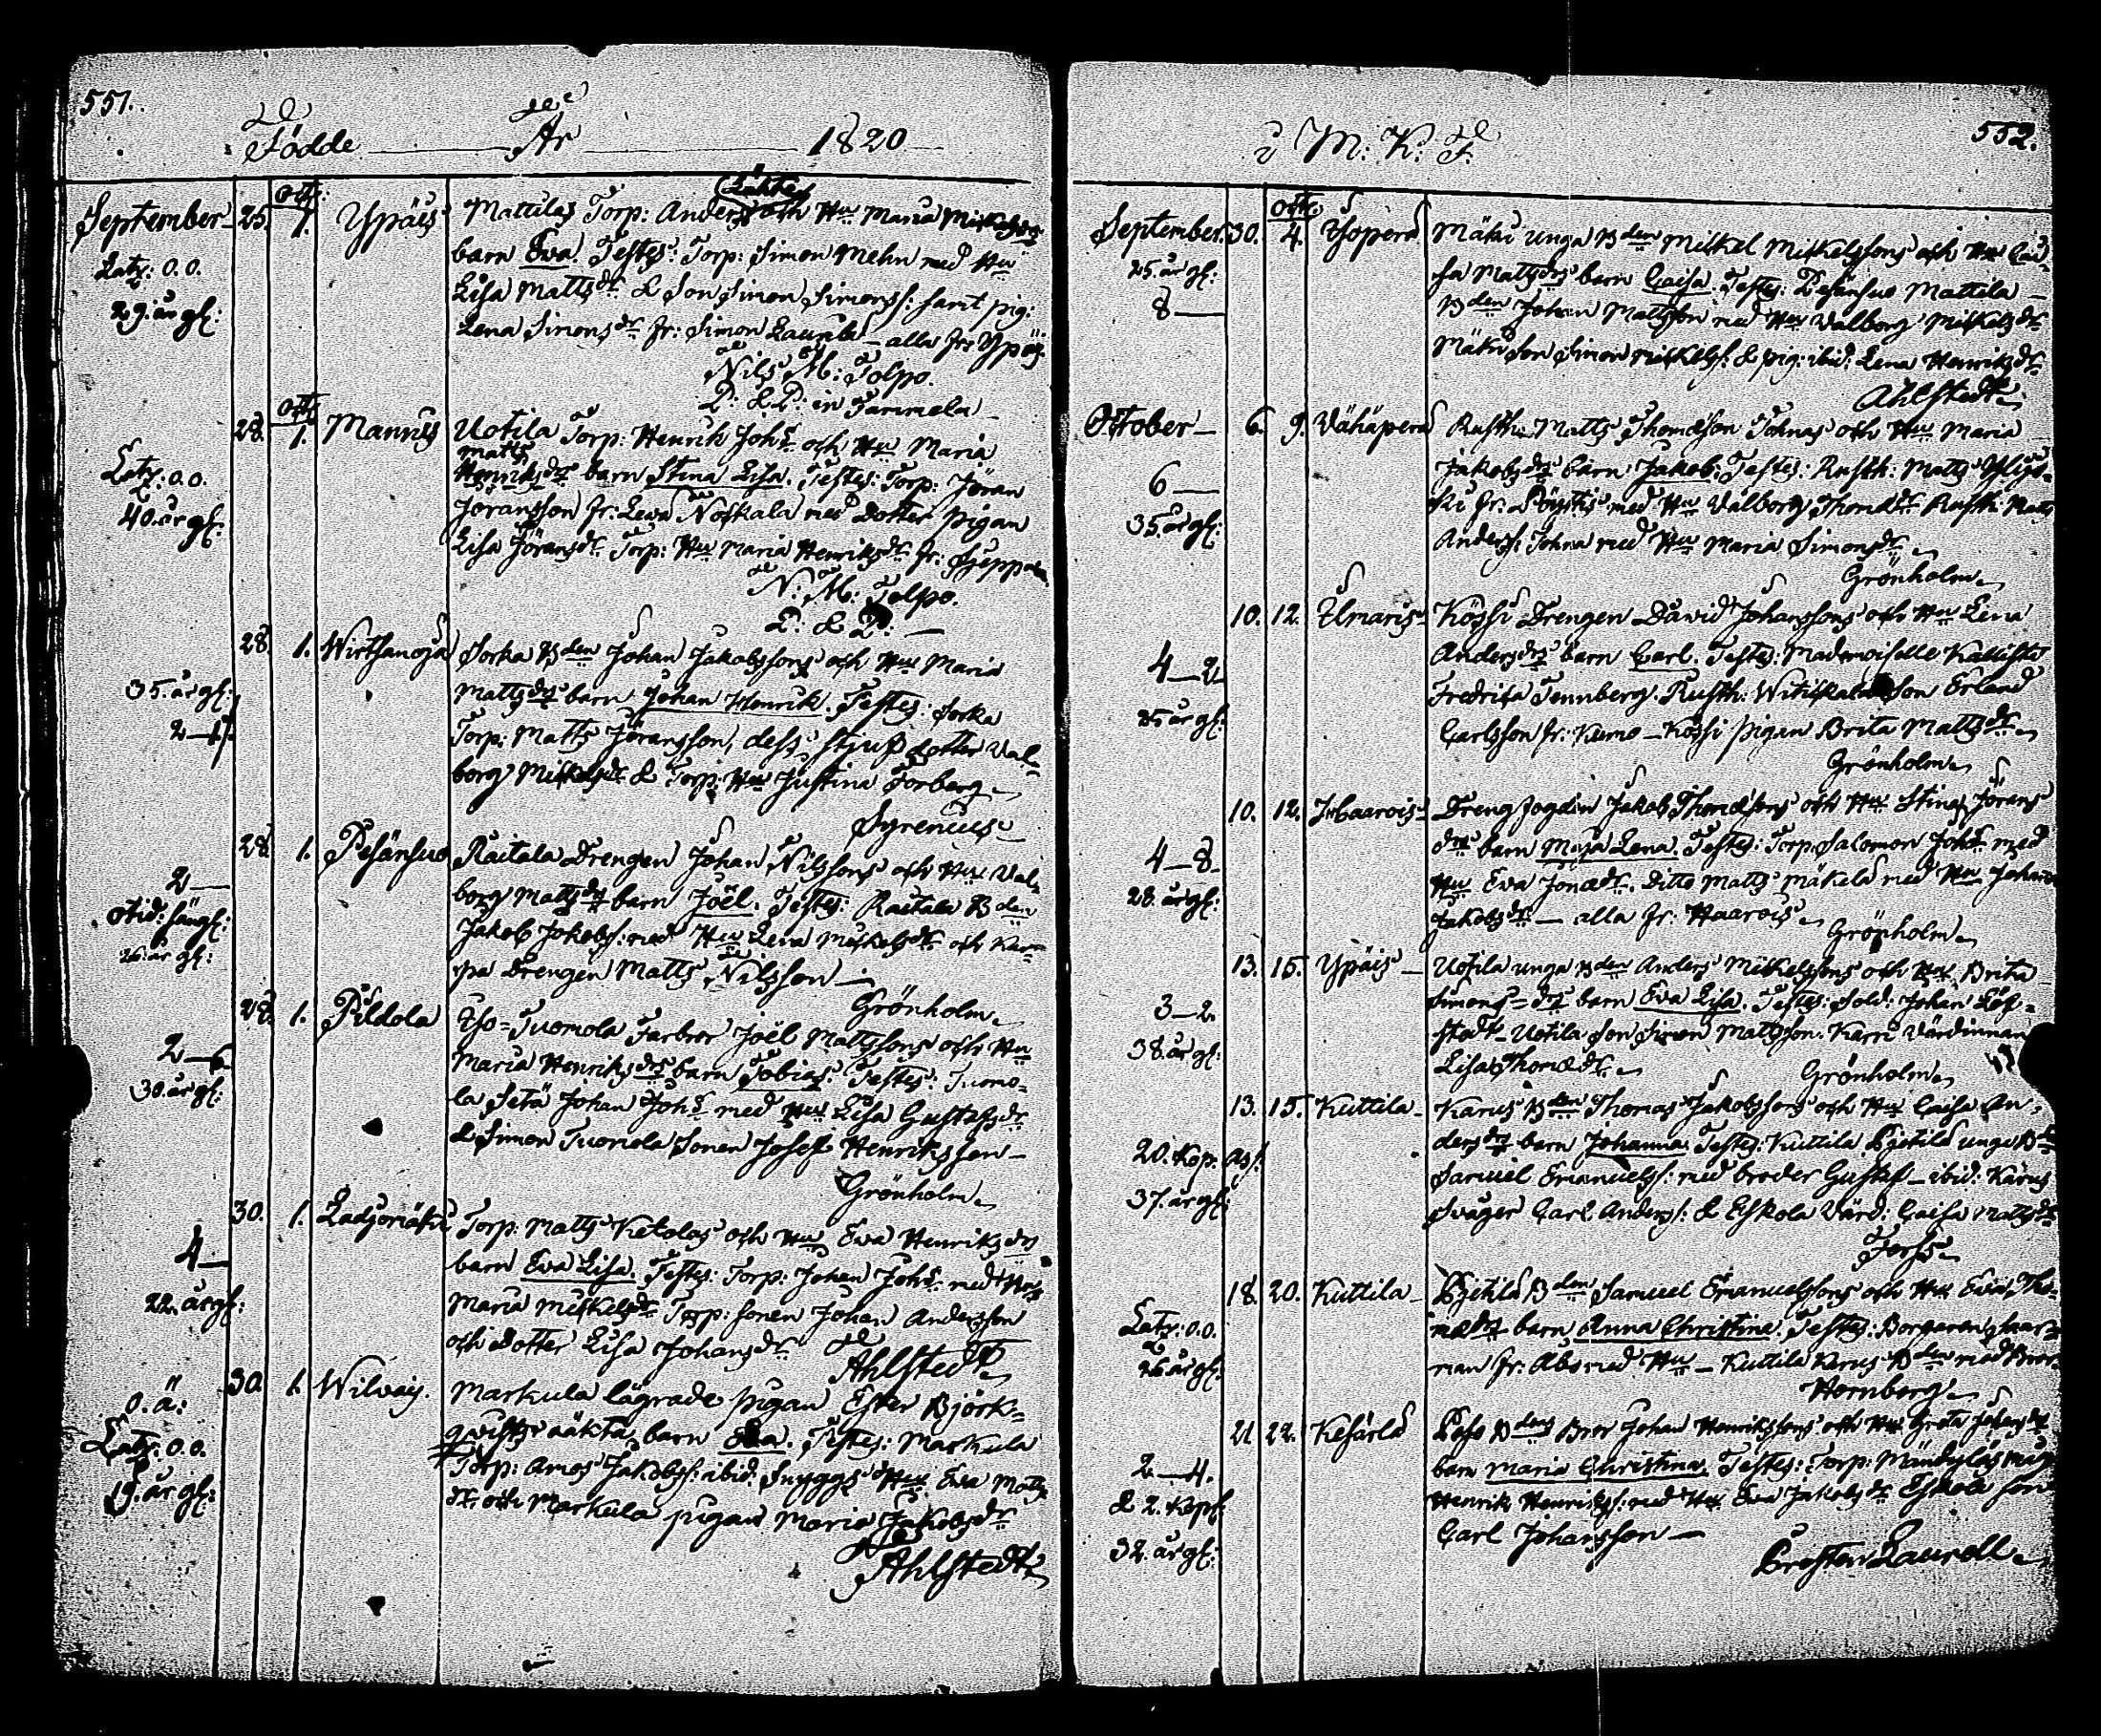 551.
Födde År 1820
September 25. Octbr: 1. Ypäis Mattilas Torp: Anders och Hu Maria Mickelsdrs
Latz: 0.0.
29. år gl:
barn Eva. Testes: Torp: Simon Mehn med Hu
Lisa Mattsdr & Son Simon Simonss: samt pig:
Lena Simonsdr fr: Simon Laurila – alla fr: Ypäis.
Nils M: Tolpo.
P: & P: in Tammela
28. Octbr 1. Mannis Uotila Torp: Henrik Johs och Hu Maria
Matts
Latz: 0.0.
40. år gl:
Henriksdrs barn Stina Lisa. Testes: Torp: Jöran
Joransson fr: Lewa Noskala med Dotter pigan
Lisa Jöransdr Torp: Hu Maria Henriksdr fr: Seppälä
N: M: Tolpo.
P: & P:
28. 1. Wirtsanoja Sorka Bden Johan Jakobssons och Hu Maria
35. år gl:
Mattsdrs barn Johan Henrik. Testes: Sorka
Torp: Matts Jöransson, dess stjuf dotter Val-
borg Mickelsdr & Torp: Hu Justina Forberg
Syrenius
28. 1. Pesänsuo Raitala Drengen Johan Nilssons och Hu Val-
2 —
otid: sängl:
26. år gl:
borg Mattsdrs barn Joël. Testes: Raitala Bden
Jakob Jakobs: med Hu Lena Mickelsdr och Kar-
pa Drengen Matts Nilsson
Grönholm
28. 1. Pildola Yso-Tuomola Farbror Joël Mattssons och Hu
2 — 6
30. år gl:
Maria Henriksdrs barn Tobias. Testes: Tuomo-
la Setä Johan Johs med Hu Lisa Gustafsdr
& Simon Tuomola Sonen Josef Henriksson –
Grönholm
30. 1. Ladjomäki Torp: Matts Ketolas och Hu Ewa Henriksdrs
4 —
22. år gl:
barn Eva Lisa. Testes: Torp: Johan Johs med Hu
Maria Mickelsdr Torp: sonen Johan Andersson
och Dotter Lisa Johansdr
Ahlstedt
30. 1. Wilvais. Markula lägrade pigan Ester Björk-
o. ä:
Latz: 0.0.
19. år gl:
qwists oäkta barn Eva. Testes: Markula
Torp: Amos Jakobss: ibid: Snyggs Hu Eva Matts
dr och Markula pigan Maria Jakobsdr
Ahlstedt
552.
i M: K: F.
September. 30. Octbr: 4. Ysoperä Mäki unga Bden Mickel Mickelssons och Hu Cai-
25. år gl:
8 —
sa Mattsdrs barn Caisa. Testes: Pesänsuo Mattila –
Bden Johan Mattsson med Hu Walborg Mickelsdr
Mäki Son Simon Mickelss: & pig: ibid: Lena Henriksdr
Ahlstedt
October – 6. 9. Vähäperä Rusth: Matts Thomasson Johnas och Hu Maria
6 —
35. år gl:
Jakobsdrs barn Jakob. Testes: Rusth: Matts
med Hu Valborg Thomdr Rusth: Matts
Anderss: Johna med Hu Maria Simonsdr
Grönholm
10. 12. Ilmaris Kössi Drengen David Johanssons och Hu Lena
4 — 2
25. år gl:
Andersdrs barn Carl. Testes: Mademoiselle Kallista
Fredrica Tennberg. Rusth: Witikkala Son Erland
Carlsson fr: Kumo – Kössi pigan Brita Mattsdr
Grönholm
10. 12. Haarois Dreng Jakob Thomassons och Hu Stina Jörans
4 — 8
28. år gl:
drs barn Maja Lena. Testes: Torp: Salomon Johs med
Hu Eva Jonædr. Ditto Matts Mäkelä med Hu Johanna
Jakobsdr – alla fr: Haarois
Grönholm
13. 15. Ypäis – Uotila unga Bden Anders Mickelssons och Hu Brita
3 — 2.
38. år gl:
Simons-drs barn Eva Lisa. Testes: Sold: Johan Löf-
stedt – Uotila Son Simon Mattsson. Karri Värdinnan
Lisa Thomædr.
Grönholm
13. 15. Kuttila – Karus Bden Thomas Jakobssons och Hu Caisa An-
20. Kop. Ass:
37. år gl:
dersdrs barn Johanna. Testes: Kuttila Kjetilä unge Bd
Samuel Emanuelss: med broder Gustaf – ibid: Karus
Svåger Carl Anderss: & Eskola Värd: Caisa Mattsdr
Forss
18. 20. Kuttila – Kjetilä Bden Samuel Emanuelssons och Hu Ewa Tho-
Latz: 0.0.
26. år gl:
mædrs barn Anna Christina. Testes: Borgaren
man fr: Åbo med Hu – Kuttila Karus Bden med Bror
Hornborg
21 22. Kesärlä Poso Bdens Bror Johan Henrikssons och Hu Greta Johansdrs
2 — 4.
& 2. Kopf
32. år gl:
barn Maria Christina. Testes: Torp: Mändyläs måg
Henrik Henrikss: med Hu Eva Jakobsdr Eskola son
Carl Johansson –
Prosten Laurell